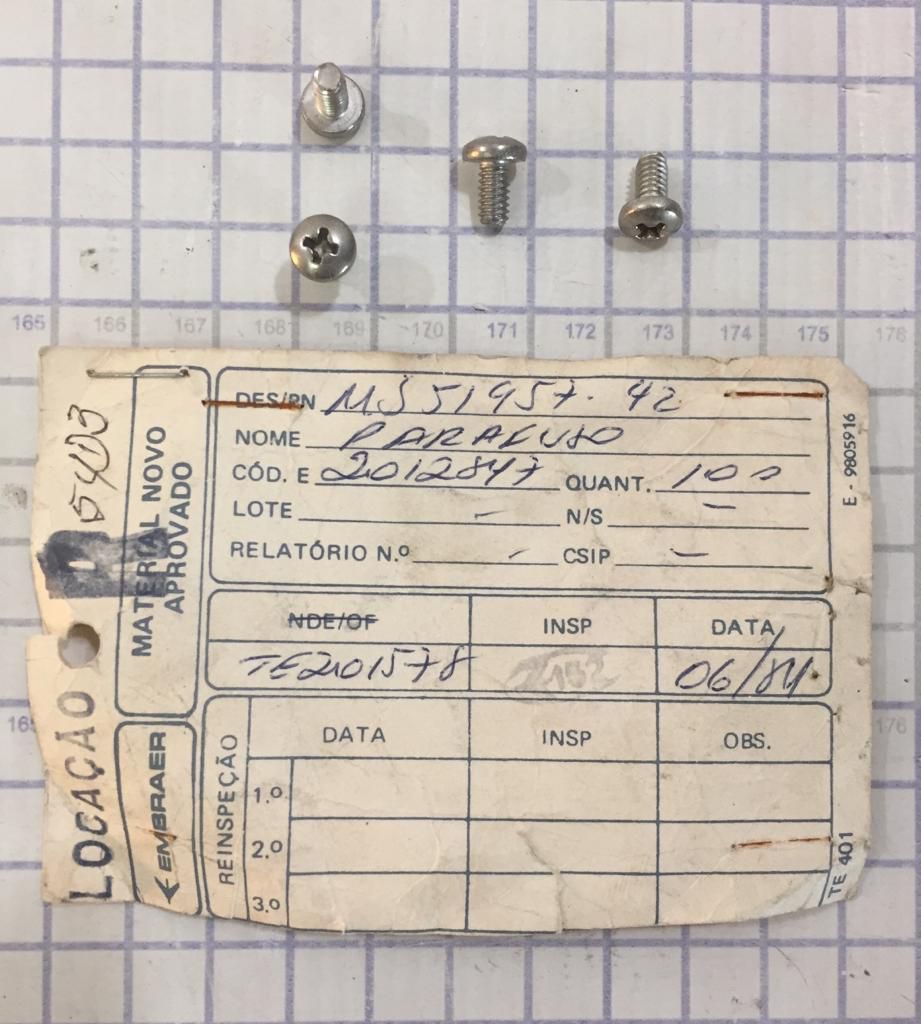 165 166 167 168 169 170 171 172 173 174 175 176
DES/PN MS51957-42
NOME PARAFUSO
CÓD. E 2012847 QUANT. 100
LOTE - N/S -
RELATÓRIO N.º - CSIP -
NDE/OF INSP DATA
TE201578 06/84
REINSPEÇÃO
DATA INSP OBS.
1.º
2.º
3.º
MATERIAL NOVO
APROVADO
EMBRAER
5403
LOCAÇÃO
E - 9805916
TE 401
176